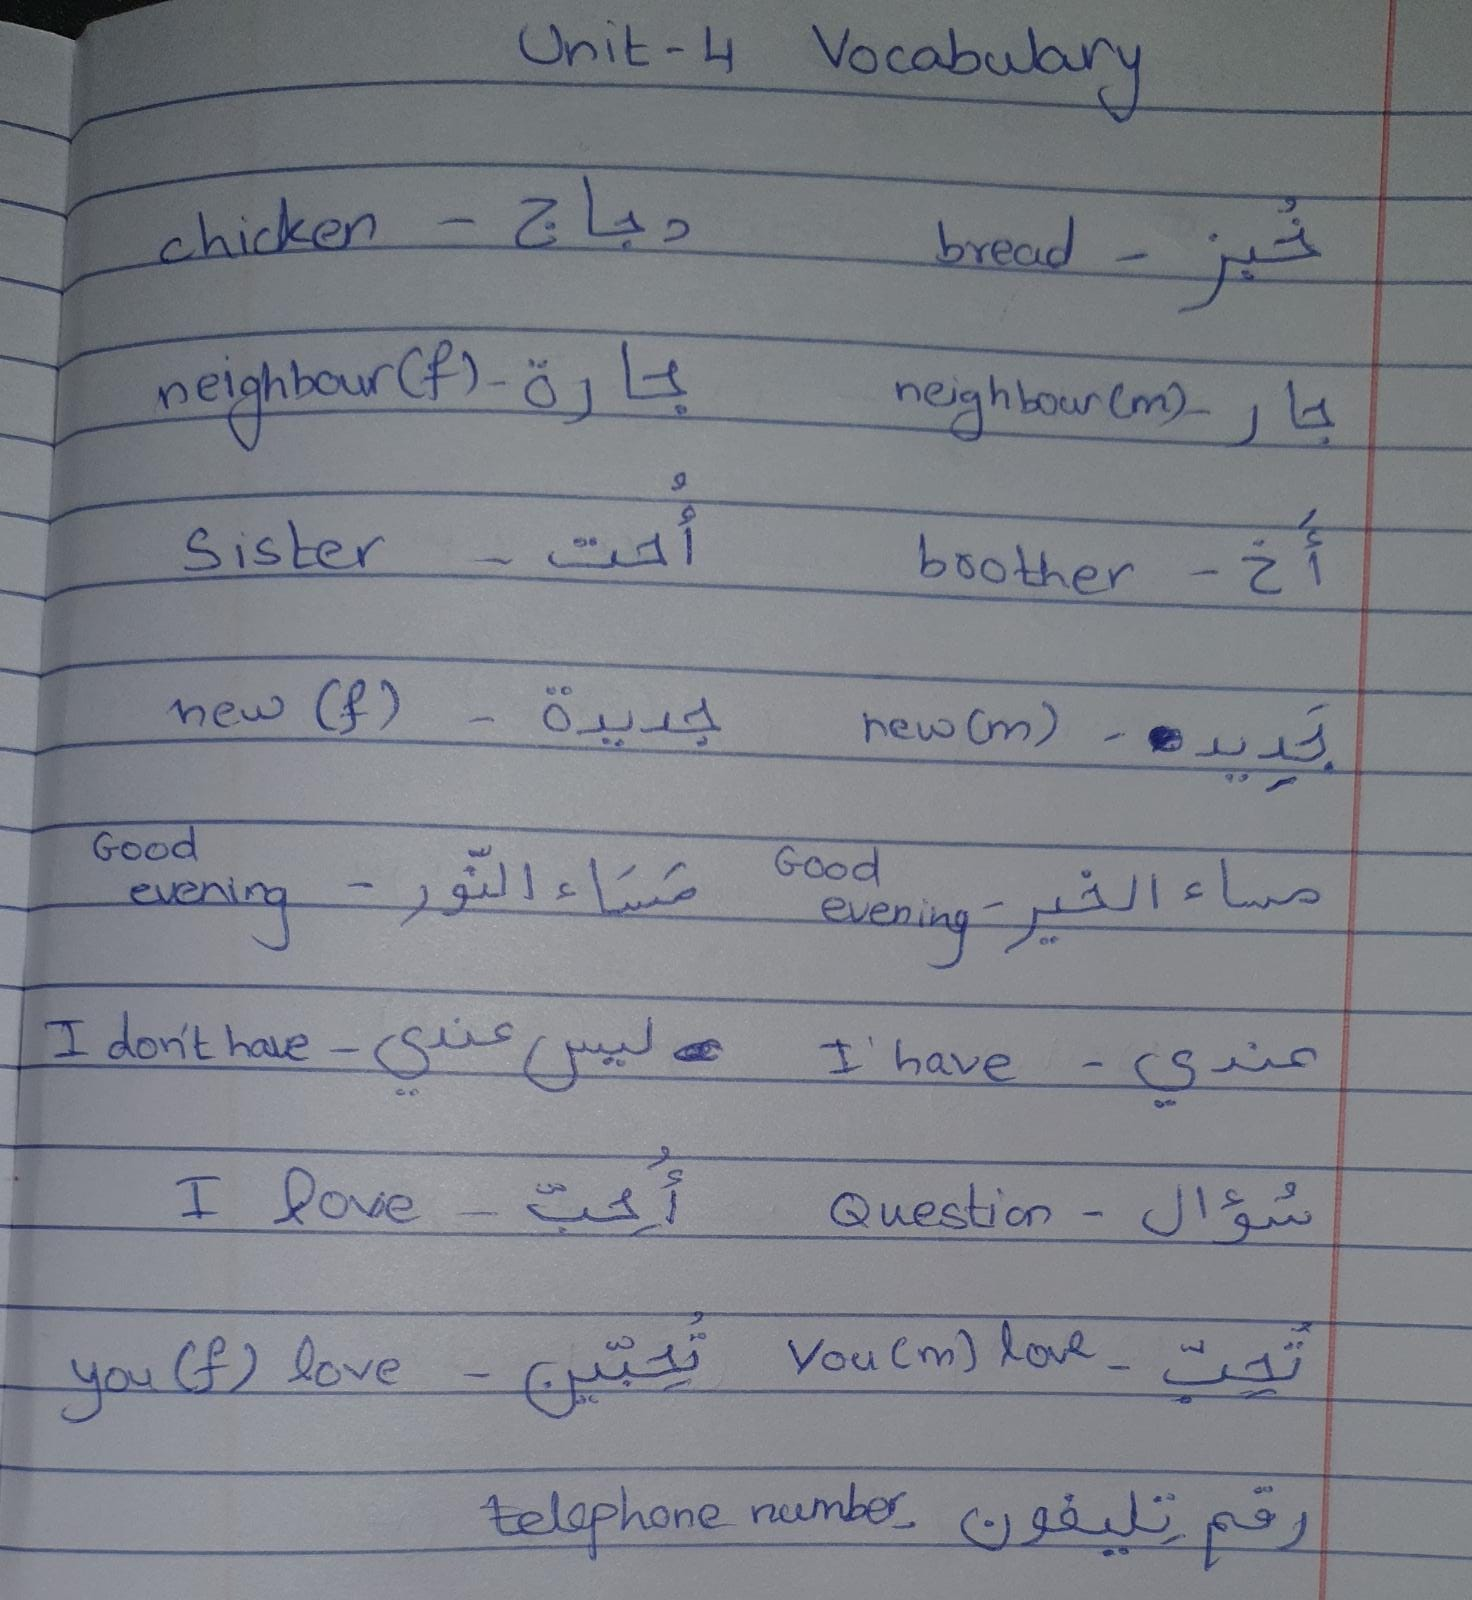 Unit-4 Vocabulary
chicken - دجاج bread - خُبز
neighbour(f) - جارة neighbour(m) - جار
Sister - أُحت brother - أَخ
new (f) - جديدة new (m) - جَدِيد
Good evening - مَسَاء النّور Good evening - مساء الخير
I don't have - ليس عندي I have - عندي
I love - أُحِبّ Question - سُؤال
you (f) love - تُحِبّين You (m) love - تُحِبّ
telephone number - رقم تِليفون